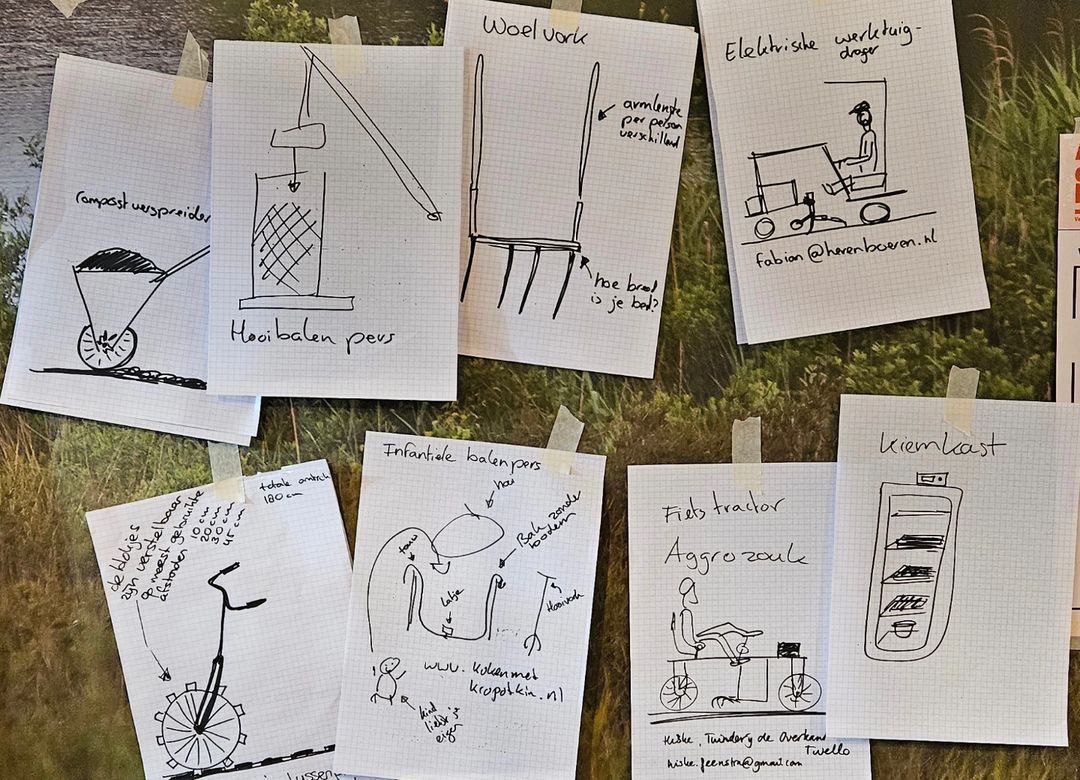 Compostverspreider
Hooibalen pers
Woelvork
armlengte
per person
verschillend
hoe breed
is je bed?
Elektrische werktuig-
drager
fabian@herenboeren.nl
de blokjes
zijn verstelbaar
op meest gebruikte
afstanden
10 cm
20 cm
30 cm
45 cm
totale omtrek
180 cm
Infantiele balenpers
touw
Bak zonder
bodem
latje
Hooivork
www.kokenmet
kropotkin.nl
kind
liefst je
eigen
Fietstractor
Aggrozouk
Hiske, Tuinderij de Overkant
Twello
hiske.feenstra@gmail.com
Kiemkast